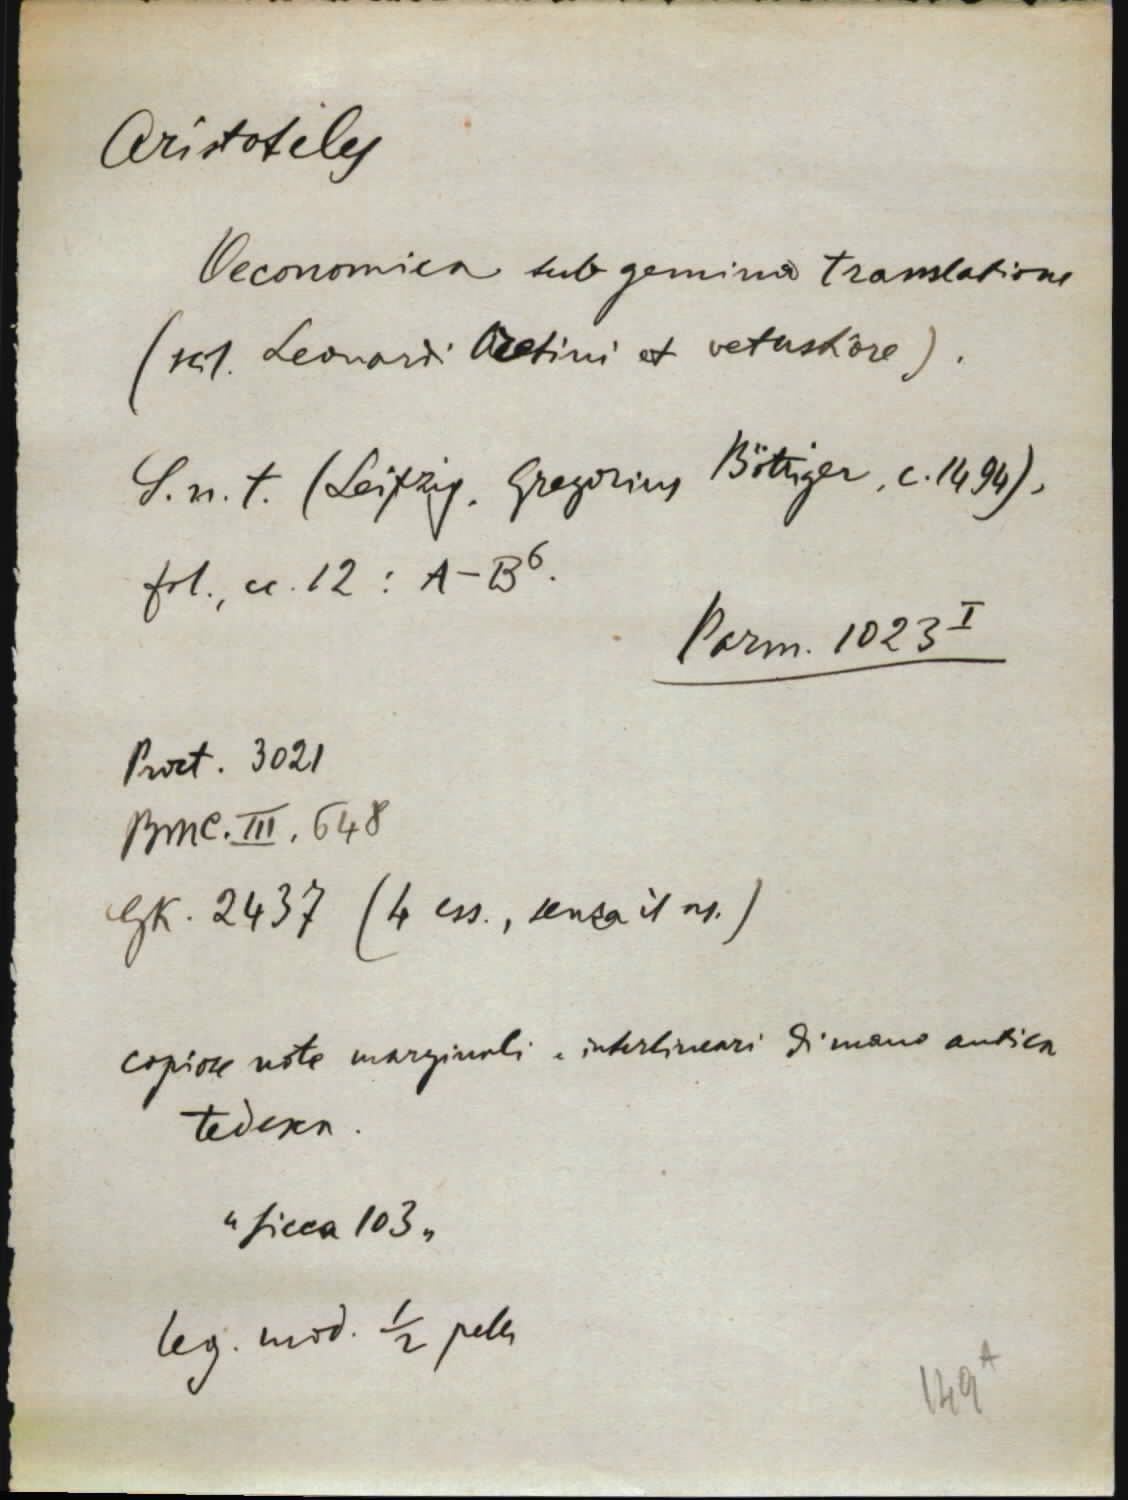 Aristoteles
Oeconomica sub gemina translatione
(scil. Leonardi Aretini et vetustiore).
S.n.t. (Leipzig, Gregorius Böttiger, c. 1494),
fol., cc. 12 : A-B⁶.
Parm. 1023 I
Proct. 3021
BMC. III, 648
GK. 2437 (4 ess., senza il ns.)
copiose note marginali e interlineari di mano antica
tedesca.
"Sicca 103"
leg. mod. ½ pelle
149 A